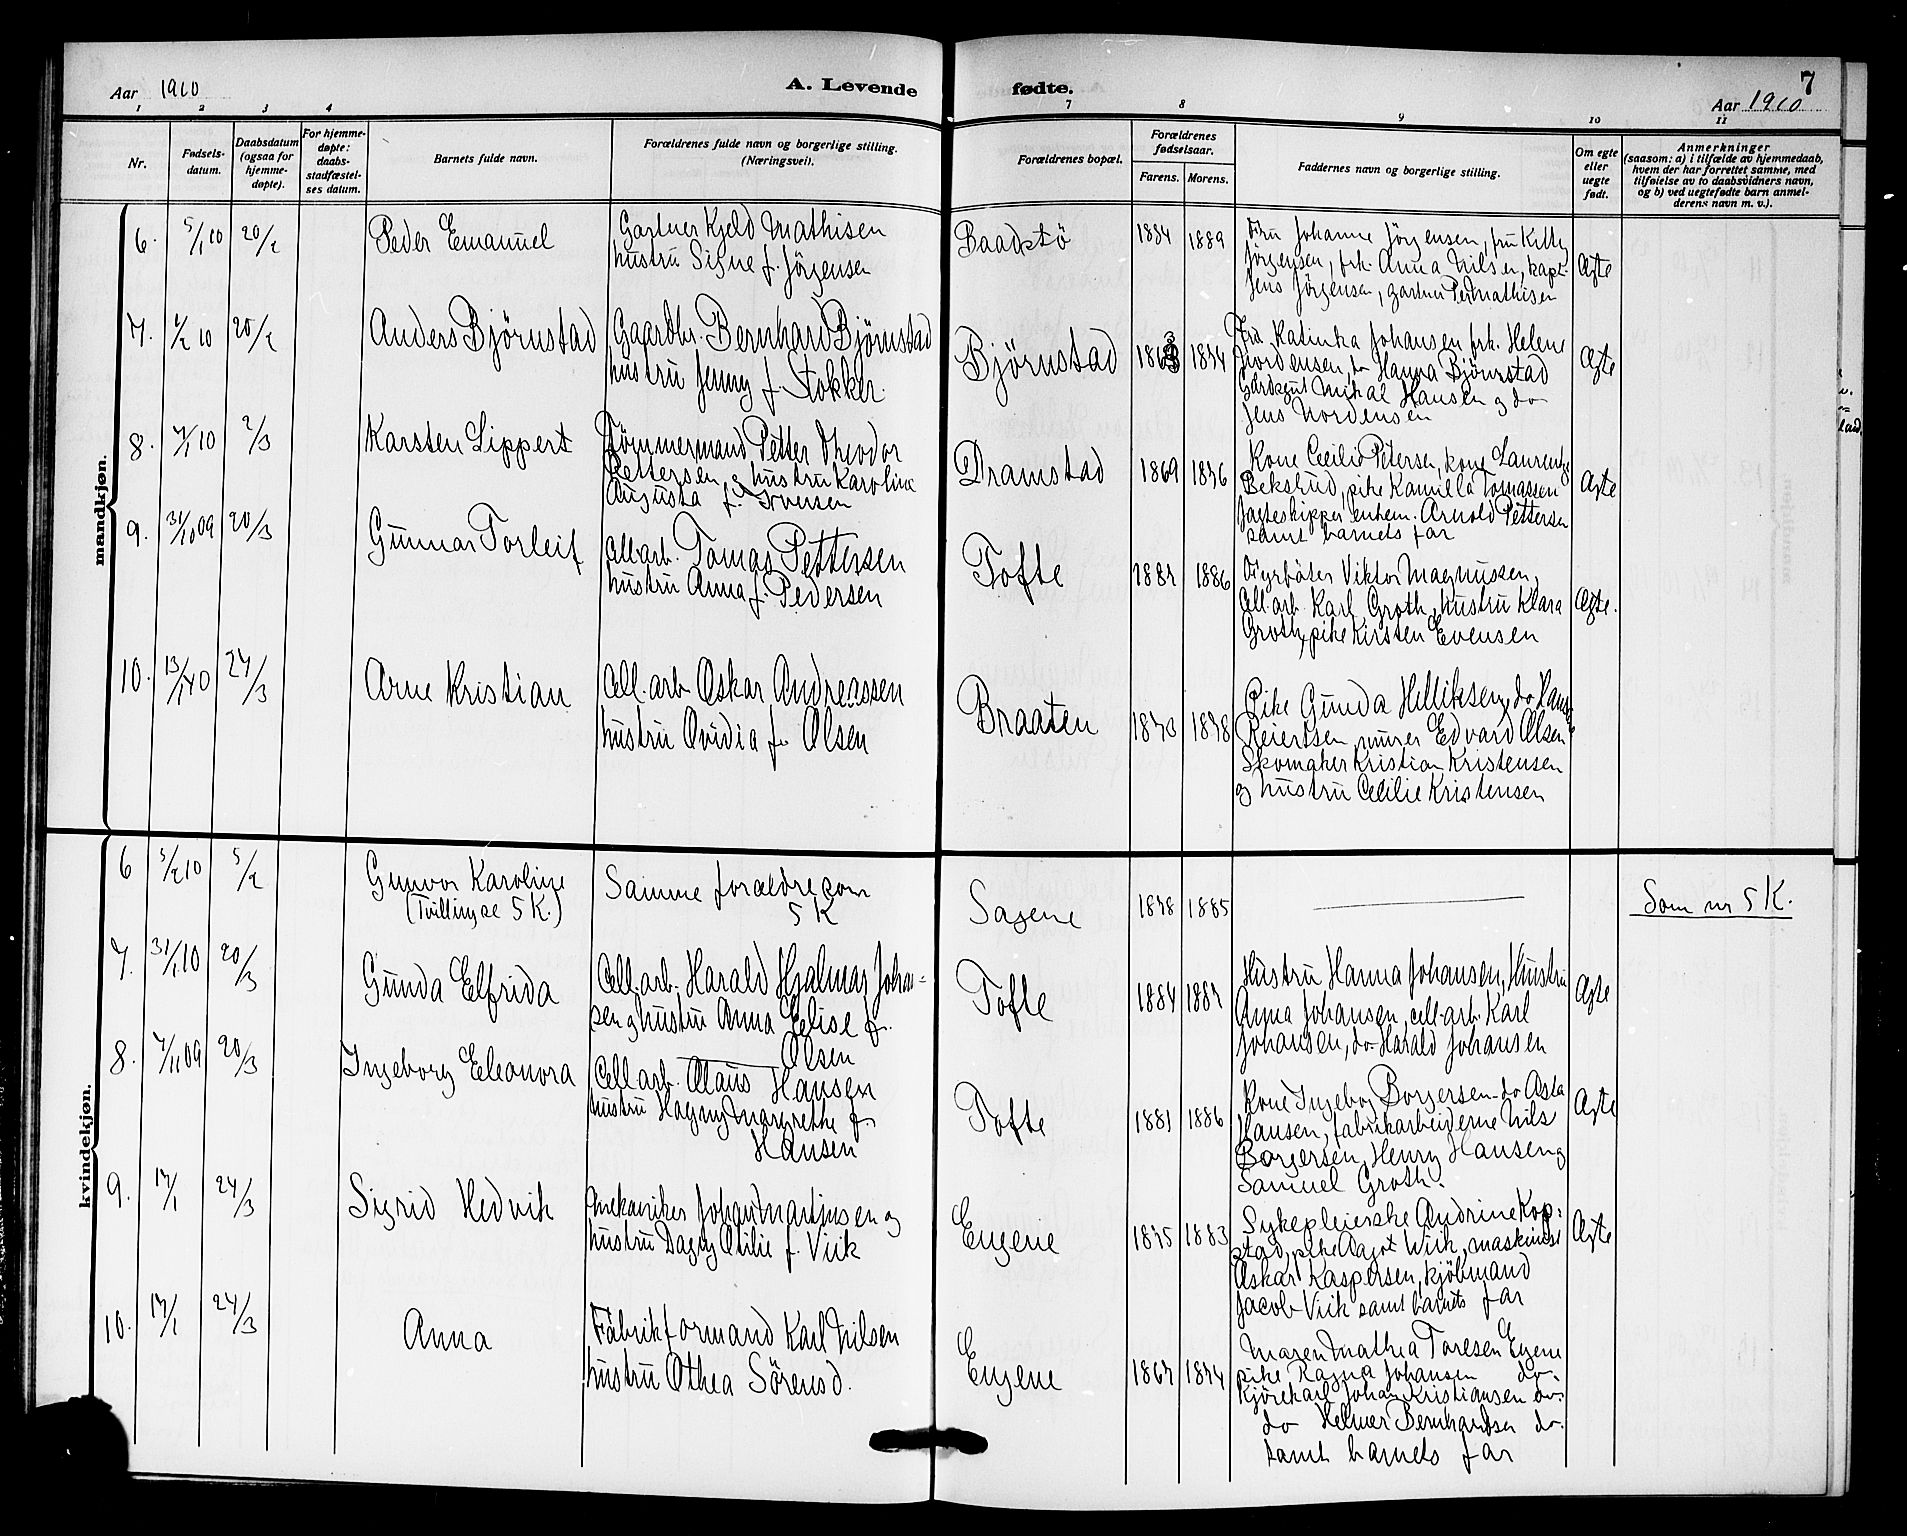 Aar 1910
A. Levende
fødte.
7
Aar 1910
1 2 3 4 7 8 9 10 11
Nr.
Fødsels-
datum.
Daabsdatum
(ogsaa for
hjemme-
døpte).
For hjemme-
døpte:
daabs-
stadfæstel-
ses datum.
Barnets fulde navn.
Forældrenes fulde navn og borgerlige stilling.
(Næringsvei).
Forældrenes bopæl.
Forældrenes
fødselsaar.
Farens. Morens.
Faddernes navn og borgerlige stilling.
Om egte
eller
uegte
født.
Anmerkninger
(saasom: a) i tilfælde av hjemmedaab,
hvem der har forrettet samme, med
tilføielse av to daabsvidners navn,
og b) ved uegtefødte barn anmel-
derens navn m. v.).
mandkjøn.
6. 5/1 10 20/2
Peder Emanuel
Gartner Kjeld Mathisen
hustru Signe f. Jörgensen
Baadstø
1884 1889
Fru Johanne Jörgensen, fru Kitty
Jörgensen, frk. Anna Nilsen, kapt.
Jens Jörgensen, gartner Per Mathisen
Ægte
7. 7/2 10 20/2
Anders Björnstad
Gaardbr. Bernhard Björnstad
hustru Jenny f. Stokker
Björnstad
1874
Fru Katinka Johansen frk. Helene
Nordensen, do Hanna Björnstad
Mikal Hansen og do
Jens Nordensen
Ægte
8. 7/1 10 2/3
Karsten Lippert
Tömmermand Petter Theodor
Pettersen og hustru Karoline
Augusta f. Iversen
Dramstad
1869 1876
Kone Cecilie Petersen, kone Laurentze
Bekslud, pike Kamilla Tomassen
Jagteskipper enkem. Arnold Pettersen
samt barnets far
Ægte
9. 31/10 09 20/3
Gunnar Torleif
Cell.arb. Tomas Pettersen
hustru Anna f. Pedersen
Tofte
1887 1886
Fyrböter Viktor Magnussen,
Cell.arb. Karl Groth, hustru Klara
Groth, pike Kirsten Evensen
Ægte.
10. 13/1 10 24/3
Arne Kristian
Cell.arb Oskar Andreassen
hustru Ovidia f. Olsen
Braaten
1873 1878
Pike Gunda Helliksen, do Hansine
Reierssen, murer Edvard Olsen
Skomaker Kristian Kristensen
og hustru Cecilie Kristensen
kvindekjøn.
6 5/2 10 5/2
Gunvor Karoline
(Tvilling se 5 K.)
Samme forældre som
5 K
Sagene
1878 1885
Som nr 5 K.
7. 31/1 10 20/3
Gunda Elfrida
Cell.arb. Harald Hjalmar Johan-
sen og hustru Anna Elise f.
Olsen
Tofte
1884 1887
Hustru Hanna Johansen, Hustru
Anna Johansen, cell.arb. Karl
Johansen, do Harald Johansen
Ægte
8. 7/11 09 20/3
Ingeborg Eleonora
Cell arb. Olaus Hansen
hustru Hagny Margrethe f.
Hansen
Tofte
1881 1886
Kone Ingebor Borgersen do Asta
Hansen, fabrikarbeiderne Nils
Borgersen, Henry Hansen og
Samuel Groth.
Ægte
9. 17/1 24/3
Sigrid Hedvik
Mekaniker Johan Martinsen og
hustru Dagny Otilie f. Viik
Engene
1875 1883
Sykepleierske Andrine Kop-
stad, pike Aagot Wiik, maskinist
Oskar Kaspersen, kjöbmand
Jacob Viik samt barnets far
Ægte
10. 17/1 24/3
Anna
Fabrikformand Karl Nilsen
hustru Othea Sörensd.
Engene
1867 1874
Maren Mathea Toresen Engene
pike Ragna Johansen do.
Kjörekarl Johan Kristiansen do.
do Helmer Bernhardsen do.
samt barnets far